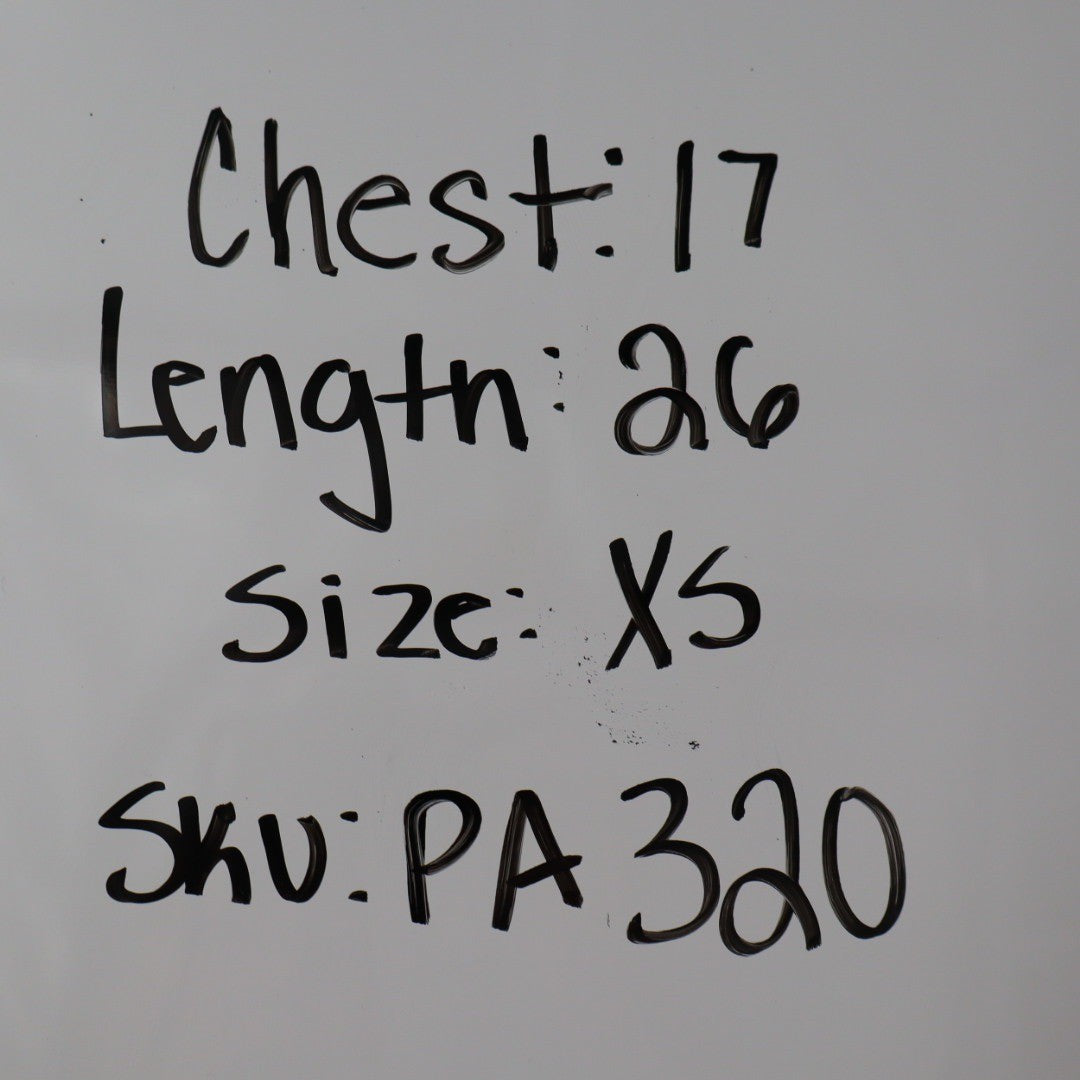 Chest: 17
Length: 26
Size: XS
SKU: PA 320